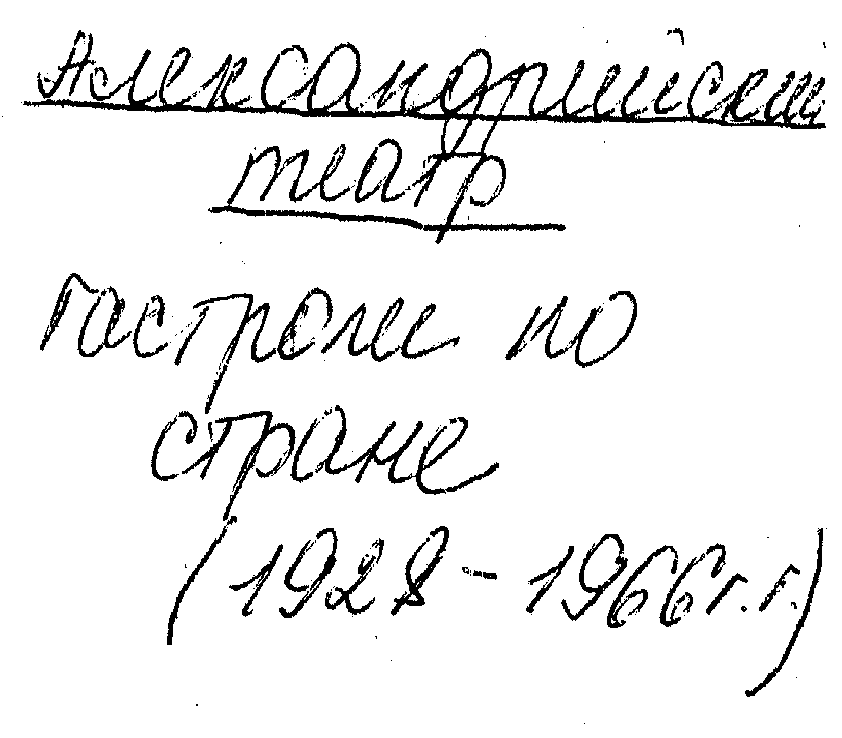 Александрийский
театр
гастроли по
стране
(1928 - 1966 г.г.)